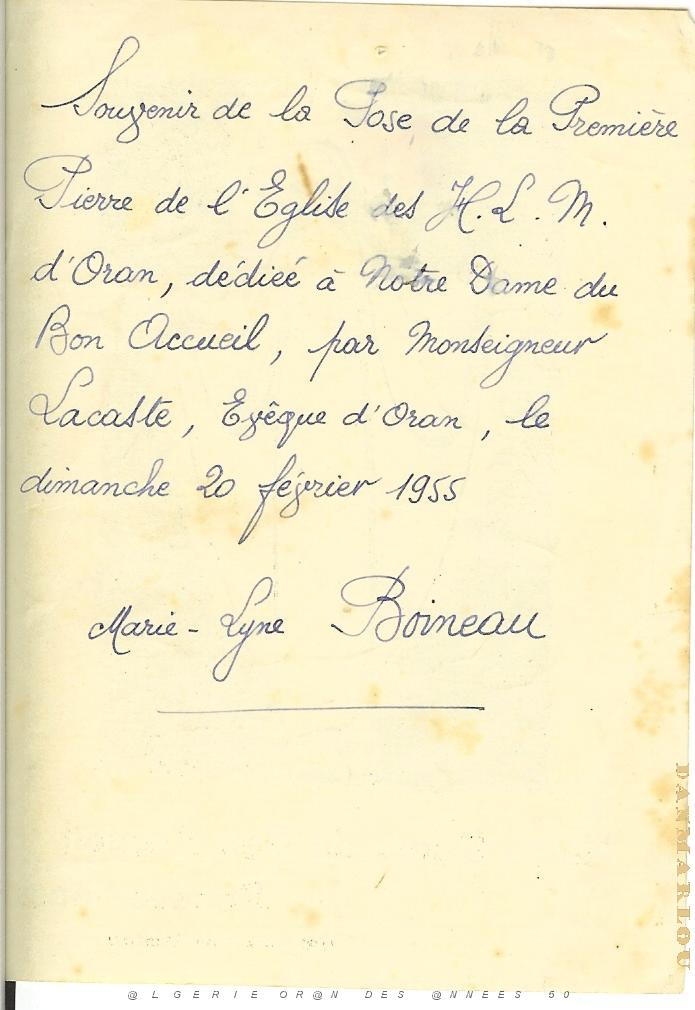 Souvenir de la Pose de la Première
Pierre de l'Eglise des H.L.M.
d'Oran, dédiée à Notre Dame du
Bon Accueil, par Monseigneur
Lacaste, Evêque d'Oran, le
dimanche 20 février 1955
Marie-Lyne Boineau
DANMARLOU
@LGERIE OR@N DES @NNEES 50